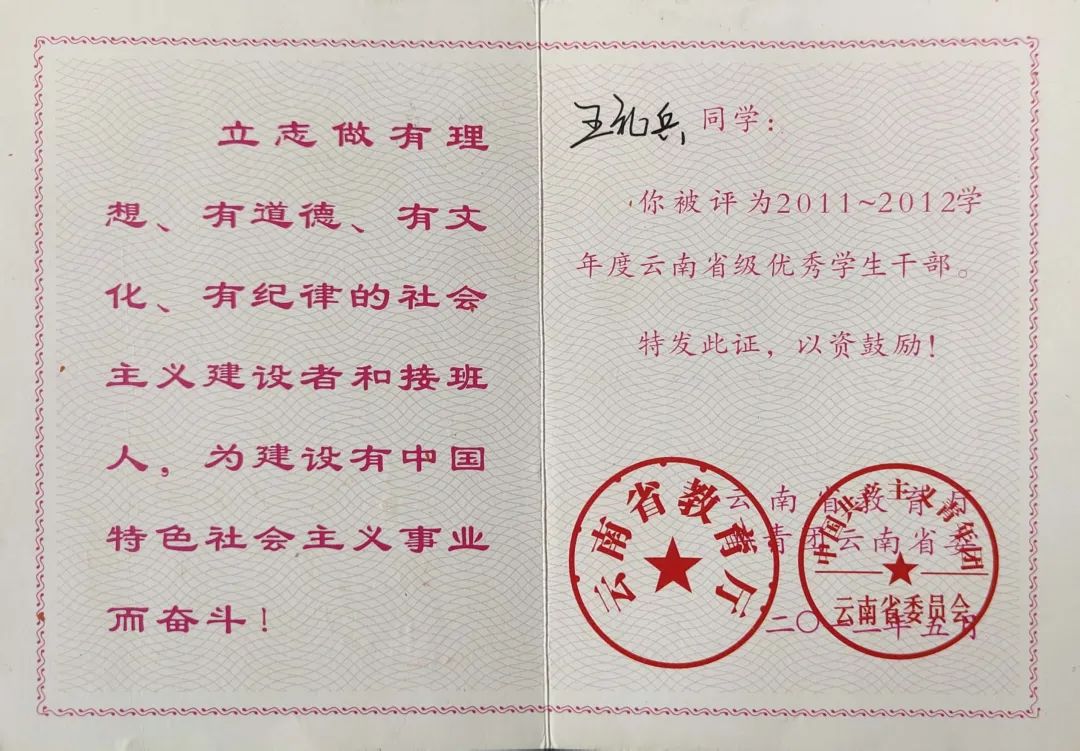 立志做有理
想、有道德、有文
化、有纪律的社会
主义建设者和接班
人，为建设有中国
特色社会主义事业
而奋斗！
王礼兵同学：
你被评为2011~2012学
年度云南省级优秀学生干部。
特发此证，以资鼓励！
云南省教育厅
共青团云南省委
二〇一二年五月
云南省教育厅
中国共产主义青年团
云南省委员会